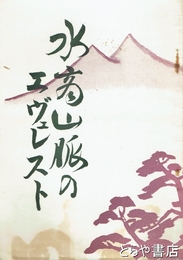 水斉山脈の
エヴェレスト
とらや書店